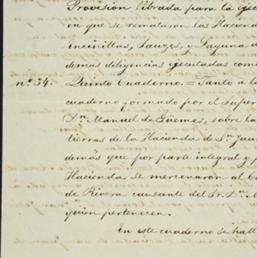 Provision librada para la eje
en que se remataron las Haciend
incinillas, Sauzes, y Laguna d
demas diligencias ejecutadas com
nº 34. Quinto Cuaderno. = Santo a l
cuaderno formado por el Super
Dn. Manuel de Güemes, sobre la
tierras de la Hacienda de Sn. Jua
demás que por parte integral y
Hacienda se mercenaron al C
de Rivera causante del Sr. Dn.
quien pertenecen.
En este cuaderno se hall